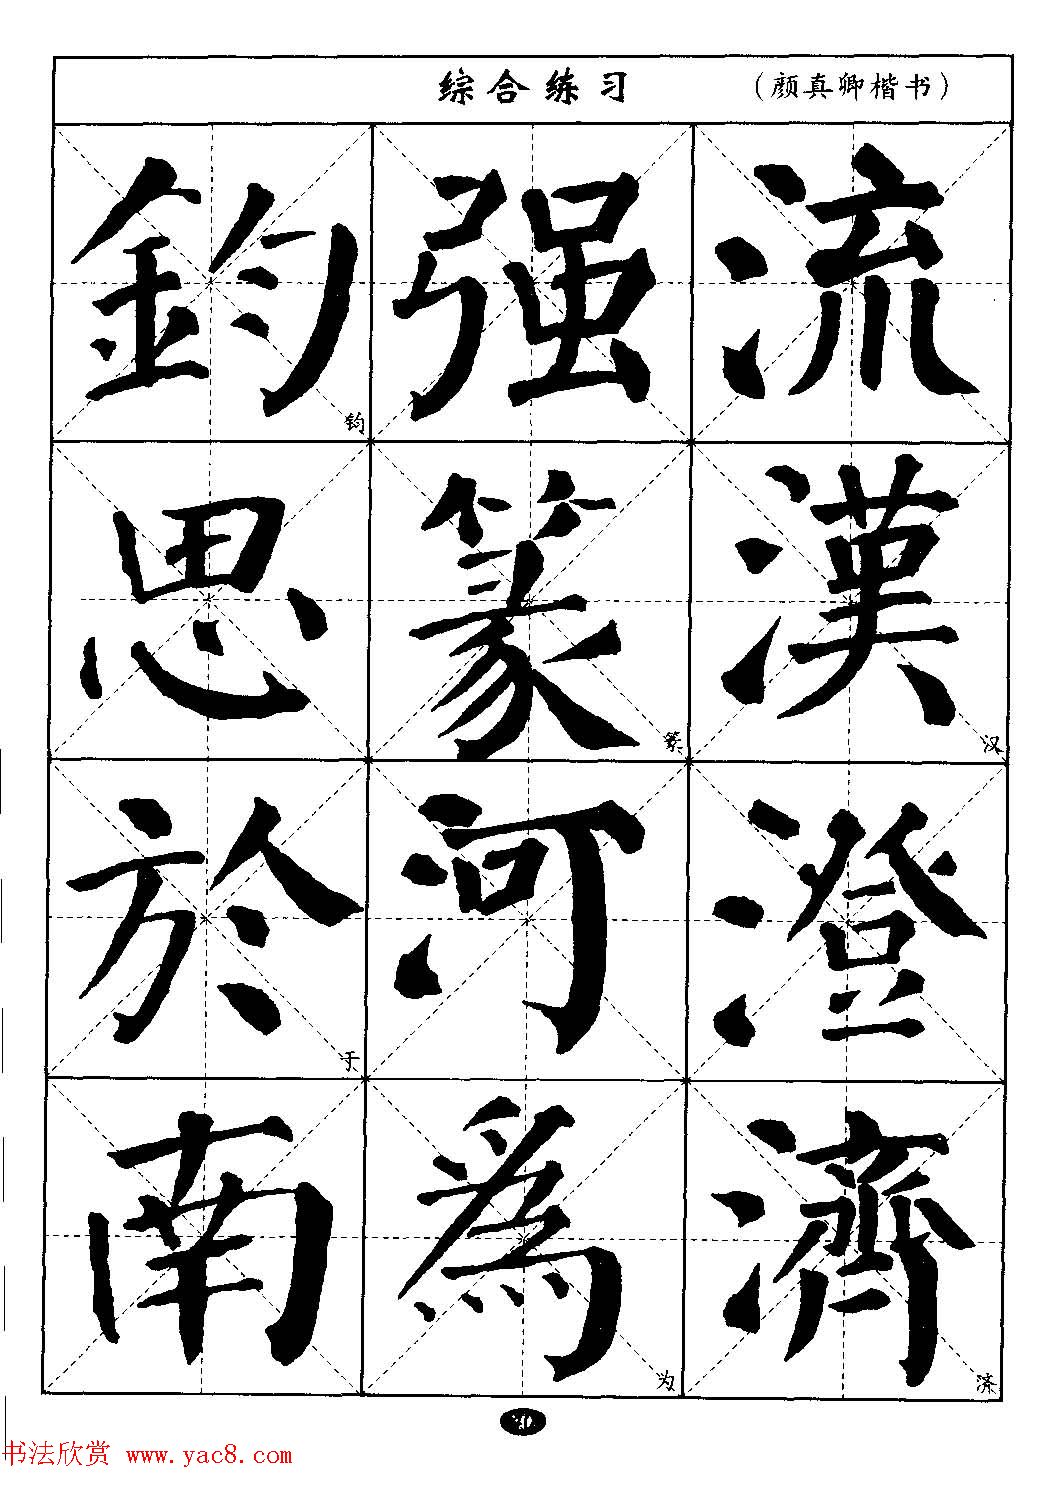 综合练习 （颜真卿楷书）
鈞 强 流
钧
思 篆 漢
篆 汉
於 河 澄
于
南 爲 濟
为 济
书法欣赏 www.yac8.com